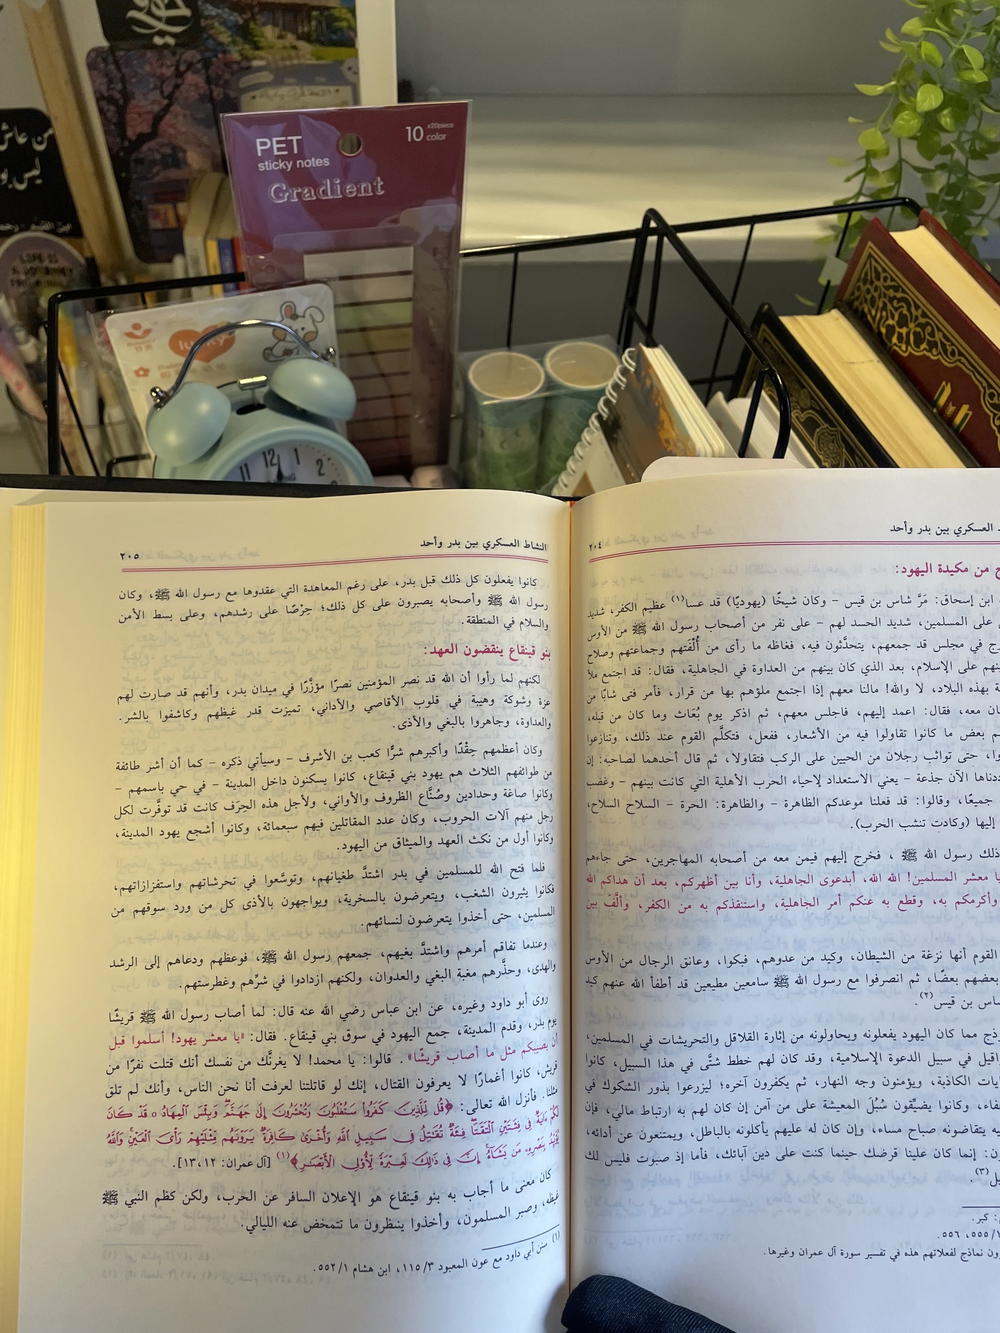 من عاش
ليس
PET
sticky notes
Gradient
10 x20piece
color
lucky
11 12 1
2
النشاط العسكري بين بدر وأحد
٢٠٤
العسكري بين بدر وأحد
من مكيدة اليهود:
ابن إسحاق: مَرَّ شاس بن قيس - وكان شيخًا (يهوديًا) قد عسا(١) عظيم الكفر، شديد
على المسلمين، شديد الحسد لهم - على نفر من أصحاب رسول الله ﷺ من الأوس
في مجلس قد جمعهم، يتحدَّثون فيه، فغاظه ما رأى من أُلْفَتهم وجماعتهم وصلاح
على الإسلام، بعد الذي كان بينهم من العداوة في الجاهلية، فقال: قد اجتمع ملأ
بهذه البلاد، لا والله! مالنا معهم إذا اجتمع ملؤهم بها من قرار، فأمر فتى شابًّا من
معه، فقال: اعمد إليهم، فاجلس معهم، ثم اذكر يوم بُعَاث وما كان من قبله،
بعض ما كانوا تقاولوا فيه من الأشعار، ففعل، فتكلَّم القوم عند ذلك، وتنازعوا
حتى تواثب رجلان من الحيين على الركب فتقاولا، ثم قال أحدهما لصاحبه: إن
الآن جذعة - يعني الاستعداد لإحياء الحرب الأهلية التي كانت بينهم - وغضب
جميعًا، وقالوا: قد فعلنا موعدكم الظاهرة - والظاهرة: الحرة - السلاح السلاح،
إليها (وكادت تنشب الحرب).
ذلك رسول الله ﷺ ، فخرج إليهم فيمن معه من أصحابه المهاجرين، حتى جاءهم
يا معشر المسلمين! الله الله، أبدعوى الجاهلية، وأنا بين أظهركم، بعد أن هداكم الله
وأكرمكم به، وقطع به عنكم أمر الجاهلية، واستنقذكم به من الكفر، وألَّف بين
القوم أنها نزغة من الشيطان، وكيد من عدوهم، فبكوا، وعانق الرجال من الأوس
بعضهم بعضًا، ثم انصرفوا مع رسول الله ﷺ سامعين مطيعين قد أطفأ الله عنهم كيد
بن قيس(٢).
مما كان اليهود يفعلونه ويحاولونه من إثارة القلاقل والتحريشات في المسلمين،
في سبيل الدعوة الإسلامية، وقد كان لهم خطط شتَّى في هذا السبيل، كانوا
الكاذبة، ويؤمنون وجه النهار، ثم يكفرون آخره؛ ليزرعوا بذور الشكوك في
وكانوا يضيِّقون سُبُلَ المعيشة على من آمن إن كان لهم به ارتباط مالي، فإن
يتقاضونه صباح مساء، وإن كان له عليهم يأكلونه بالباطل، ويمتنعون عن أدائه،
إنما كان علينا قرضك حينما كنت على دين آبائك، فأما إذ صبوت فليس لك
(٣).
كبر.
٥٥٥، ٥٥٦.
نماذج لفعلاتهم هذه في تفسير سورة آل عمران وغيرها.
٢٠٥
كانوا يفعلون كل ذلك قبل بدر، على رغم المعاهدة التي عقدوها مع رسول الله ﷺ، وكان
رسول الله ﷺ وأصحابه يصبرون على كل ذلك؛ حِرْصًا على رشدهم، وعلى بسط الأمن
والسلام في المنطقة.
بنو قينقاع ينقضون العهد:
لكنهم لما رأوا أن الله قد نصر المؤمنين نصرًا مؤزَّرًا في ميدان بدر، وأنهم قد صارت لهم
عزة وشوكة وهيبة في قلوب الأقاصي والأداني، تميزت قدر غيظهم وكاشفوا بالشر.
والعداوة، وجاهروا بالبغي والأذى.
وكان أعظمهم حِقْدًا وأكبرهم شرًّا كعب بن الأشرف - وسيأتي ذكره - كما أن أشر طائفة
من طوائفهم الثلاث هم يهود بني قينقاع، كانوا يسكنون داخل المدينة - في حي باسمهم -
وكانوا صاغة وحدادين وصُنَّاع الظروف والأواني، ولأجل هذه الحِرَف كانت قد توفَّرت لكل
رجل منهم آلات الحروب، وكان عدد المقاتلين فيهم سبعمائة، وكانوا أشجع يهود المدينة،
وكانوا أول من نكث العهد والميثاق من اليهود.
فلما فتح الله للمسلمين في بدر اشتدَّ طغيانهم، وتوسَّعوا في تحرشاتهم واستفزازاتهم،
فكانوا يثيرون الشغب، ويتعرضون بالسخرية، ويواجهون بالأذى كل من ورد سوقهم من
المسلمين، حتى أخذوا يتعرضون لنسائهم.
وعندما تفاقم أمرهم واشتدَّ بغيهم، جمعهم رسول الله ﷺ، فوعظهم ودعاهم إلى الرشد
والهدى، وحذَّرهم مغبة البغي والعدوان، ولكنهم ازدادوا في شرِّهم وغطرستهم.
روى أبو داود وغيره، عن ابن عباس رضي الله عنه قال: لما أصاب رسول الله ﷺ قريشًا
يوم بدر، وقدم المدينة، جمع اليهود في سوق بني قينقاع. فقال: «يا معشر يهود! أسلموا قبل
أن يصيبكم مثل ما أصاب قريشًا». قالوا: يا محمد! لا يغرنَّك من نفسك أنك قتلت نفرًا من
قريش، كانوا أغمارًا لا يعرفون القتال، إنك لو قاتلتنا لعرفت أنا نحن الناس، وأنك لم تلق
مثلنا. فأنزل الله تعالى: ﴿قُل لِّلَّذِينَ كَفَرُوا۟ سَتُغْلَبُونَ وَتُحْشَرُونَ إِلَىٰ جَهَنَّمَ ۚ وَبِئْسَ ٱلْمِهَادُ ۝ قَدْ كَانَ
لَكُمْ ءَايَةٌ فِى فِئَتَيْنِ ٱلْتَقَتَا ۖ فِئَةٌ تُقَـٰتِلُ فِى سَبِيلِ ٱللَّهِ وَأُخْرَىٰ كَافِرَةٌ يَرَوْنَهُم مِّثْلَيْهِمْ رَأْىَ ٱلْعَيْنِ ۚ وَٱللَّهُ
يُؤَيِّدُ بِنَصْرِهِۦ مَن يَشَآءُ ۗ إِنَّ فِى ذَٰلِكَ لَعِبْرَةً لِّأُو۟لِى ٱلْأَبْصَـٰرِ﴾(١) [آل عمران: ١٢، ١٣].
كان معنى ما أجاب به بنو قينقاع هو الإعلان السافر عن الحرب، ولكن كظم النبي ﷺ
غيظه، وصبر المسلمون، وأخذوا ينتظرون ما تتمخض عنه الليالي.
(١) سنن أبي داود مع عون المعبود ٣/ ١١٥، ابن هشام ١/ ٥٥٢.